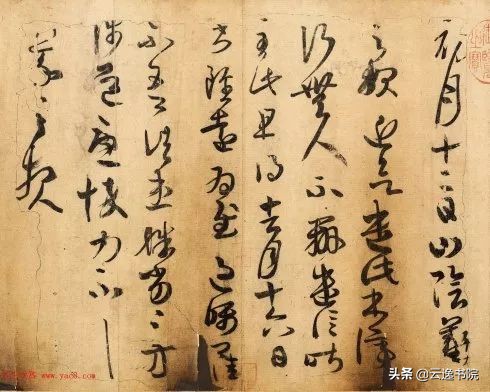 初月十二日山陰羲
之報近欲遣此書停
行無人不辦遣信昨
至此且得去月十六日
書雖遠為慰過囑
不吾諸患殊劣〻方
涉道憂悴力不具
羲之報
头条 @云逸书院